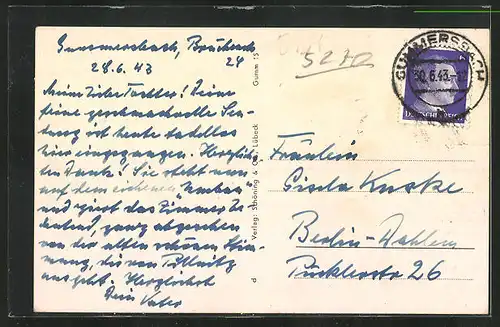 Gummersbach, Brückenstr.
24
28.6.43
Mein liebe Tochter! Deine
feine geschmackvolle Sen-
dung ist heute tadellos
hier eingegangen. Herzlich-
sten Dank! Sie steht nun
auf dem eichenen "Umbau"
und ziert das Zimmer be-
deutend, ganz abgesehen
von der alten schönen Stim-
mung, die von Pillnitz
ausgeht. Herzlichst
Dein Vater
Verlag: Schöning & Co., Lübeck
Gumm 15
d
5270
GUMMERSBACH
30.6.43.
DEUTSCHES REICH
Fräulein
Gisela Kuske
Berlin-Dahlem
Pücklerstr 26